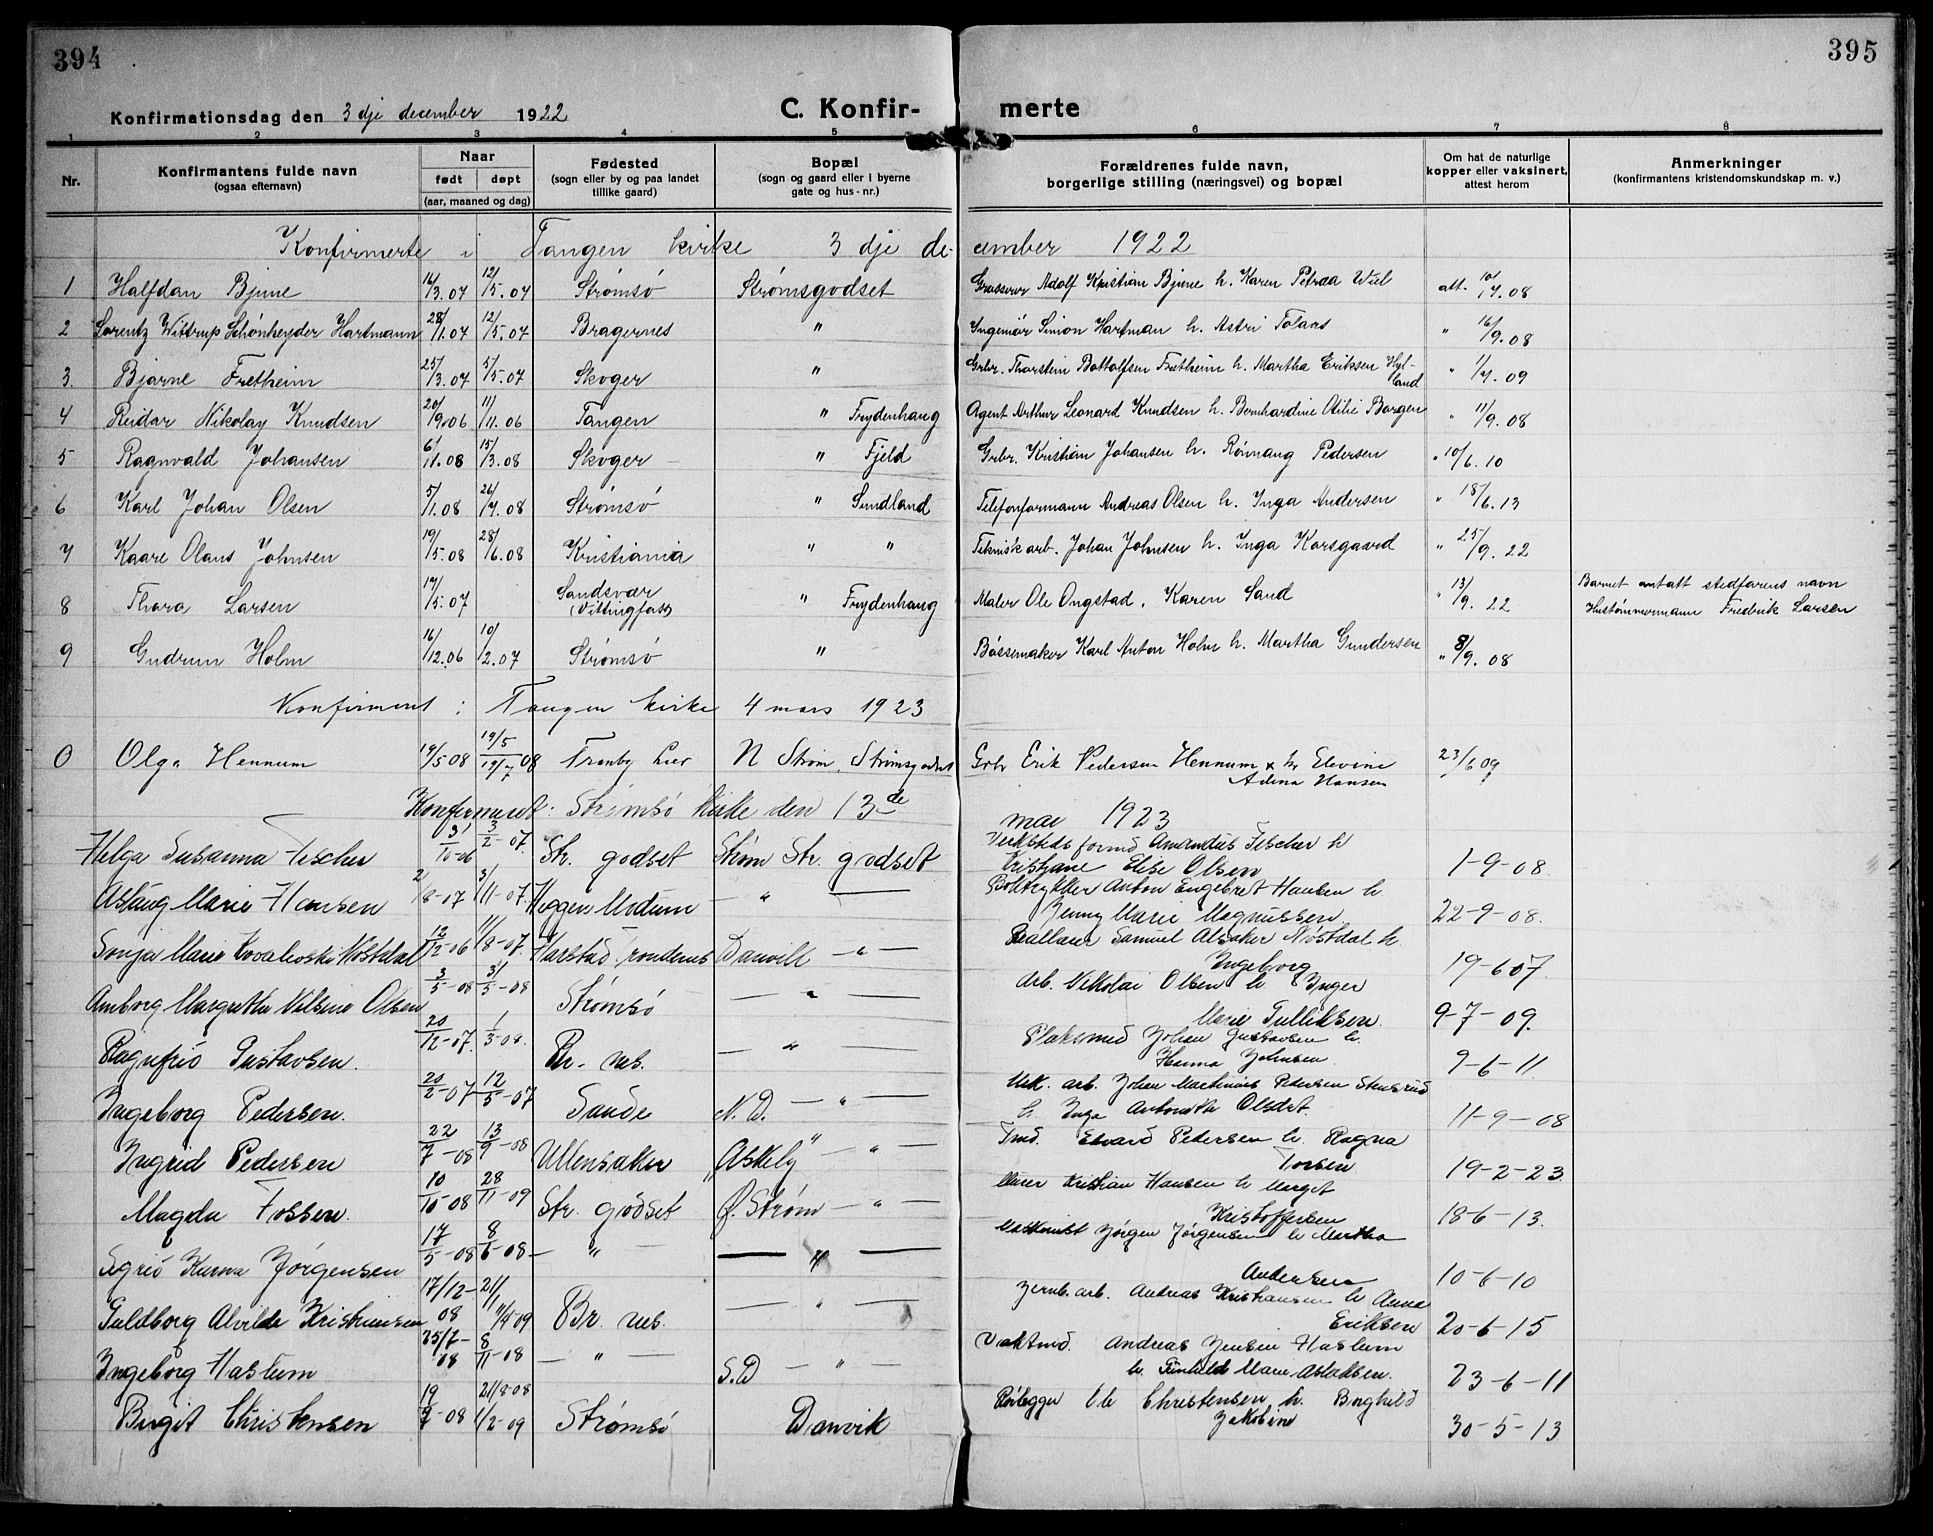 394
395
Konfirmationsdag den 3 dje december 1922
C. Konfirmerte
1 2 3 4 5 6 7 8
Nr. Konfirmantens fulde navn (ogsaa efternavn) Naar født døpt (aar, maaned og dag) Fødested (sogn eller by og paa landet tillike gaard) Bopæl (sogn og gaard eller i byerne gate og hus-nr.) Forældrenes fulde navn, borgerlige stilling (næringsvei) og bopæl Om hat de naturlige kopper eller vaksinert, attest herom Anmerkninger (konfirmantens kristendomskundskap m. v.)
Konfirmerte i Tangen kirke 3 dje december 1922
1 Halfdan Bjune 16/3.07 12/5.07 Strømsø Strømsgodset Adolf Kristian Bjune h. Karen Petrea Wiel att. 10/7.08
2 Lorentz Wittrup Schønheyder Hartmann 28/1.07 12/5.07 Bragernes " Ingeniør Simon Hartman h. Astri " 16/9.08
3. Bjarne Fretheim 25/3.07 5/5.07 Skoger " Grbr. Thorstein Bottolfsen Fretheim h. Martha Eriksen Hylland " 1/7.09
4 Reidar Nikolay Knudsen 20/9.06 11/11.06 Tangen " Frydenhaug Agent Arthur Leonard Knudsen h. Bernhardine Otilie Borgen " 11/9.08
5 Ragnvald Johansen 6/11.08 15/13.08 Skoger " Fjeld Grbr. Kristian Johansen h. Rønnaug Pedersen " 10/6.10
6 Karl Johan Olsen 5/1.08 26/7.08 Strømsø " Sundland Telefonformann Andreas Olsen h. Inga Andersen " 18/6.13
7 Kaare Olaus Johnsen 19/5.08 28/6.08 Kristiania " " Teknisk arb. Johan Johnsen h. Inga Korsgaard " 25/9.22
8 Thora Larsen 17/5.07 Sandsvær (Vittingfoss) " Frydenhaug Maler Ole Ongstad, Karen Sand " 13/9.22 Barnet antatt stedfarens navn Hustømmermann Fredrik Larsen
9 Gudrun Holm 16/12.06 10/2.07 Strømsø " Bøssemaker Karl Anton Holm h. Martha Gundersen " 8/9.08
Konfirment : Tangen kirke 4 mars 1923
0 Olga Hennum 19/5 08 19/7 08 Tranby Lier N Strøm, Strømsgodset Grbr Erik Pedersen Hennum & hr Elevine Adina Hansen 23/6 09
Konfirmeret : Strømsø Kirke den 13de mai 1923
Helga Susanna Fischer 31/10-06 3/2-07. Str. godset Strøm Str. godset Verkstedsformd Amandus Fischer h
Kristiane Elise Olsen 1-9-08.
Aslaug Marie Hansen 2/8-07 3/11-07. Heggen Modum — " — Boktrykker Anton Engebret Hansen h.
Jenny Marie Magnussen 22-9-08.
Sonja Marie Nøstdal 12/12-06 11/8-07. Harstad, Trondenes Danvik — " — Samuel Alsaker Nøstdal h.
Ingeborg 19-6 07
Amborg Margrethe Nilsine Olsen 3/5-08 31/5-08 Strømsø — " — Arb. Nikolai Olsen h Inger
Marie Tulliksen. 9-7-09.
Ragnfrid Gustavsen. 20/12-07. 1/3-08. Br. nes. — " — Plaksmed Johan Gustavsen h.
Hanna Johnsen. 9-6-11
Ingeborg Pedersen. 20/2-07 12/5-07 Sande N. D. — " — arb. Johan Martinius Pedersen Stensrud
h. Inga Olsdat. 11-9-08
Ingrid Pedersen 22/7-08 13/9-08 Ullensaker Askely — " — Fmd. Edvard Petersen h. Ragna
19-2-23
Magda Fossen. 10/10-08 28/11-09 Str. godset Ø. Strøm — " — Murer Kristian Hansen h Marget
Kristoffersen 18-6-13.
Sigrid Karna Jørgensen 17/5-08 8/6-08 — " — — " — Maskinist Jørgen Jørgensen h Martha
Andersen 10-6-10
Guldborg Alvilde Kristiansen 17/12-08 21/11 11/4 09 Br. nes. — " — Jernb. arb. Andreas Kristiansen h Anna
Eriksen 20-6-15
Ingeborg Haslum 25/7-08 8/11-08 — " — S. D — " — Vaktmd. Andreas Jensen Haslum
h. Gunhild Marie Aslaksen. 23-6-11
Birgit Christensen 19/7-08 21/8-08 1/2-09 Strømsø Danvik Rørlegger Ole Christensen h. Borghild
Jakobine 30-5-13